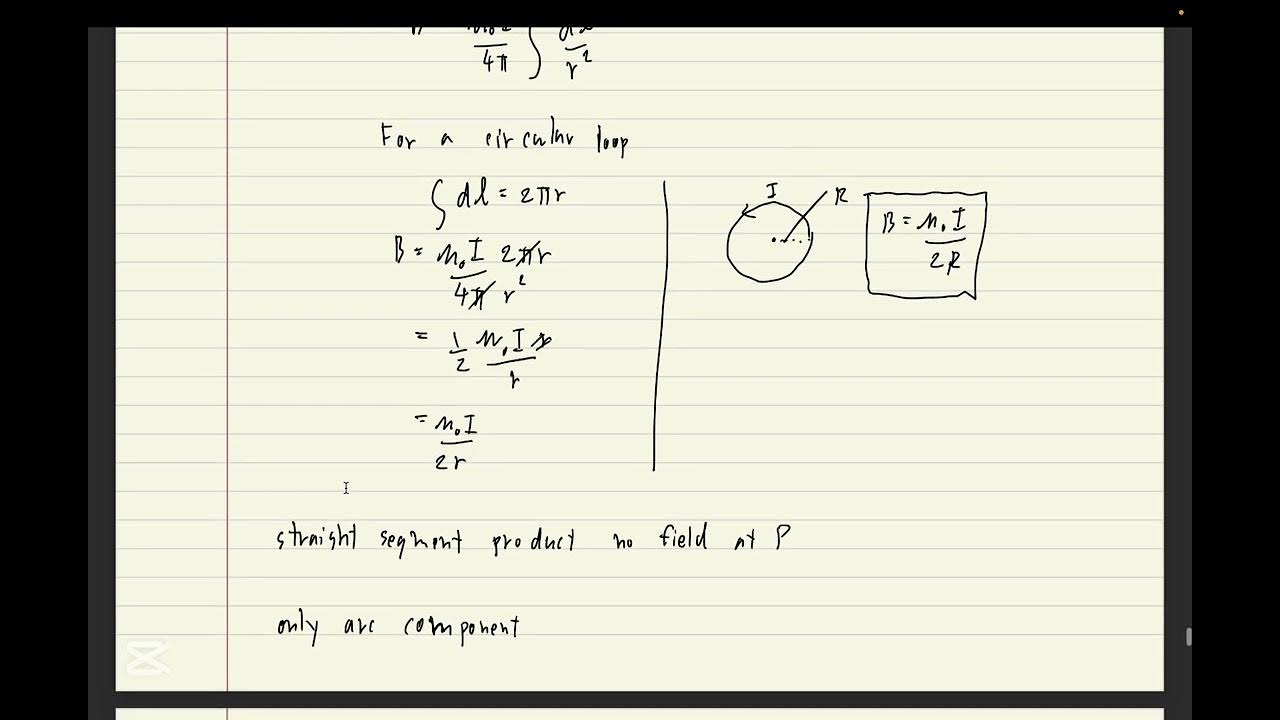 4π ∫ r²
For a circular loop
∫ dl = 2πr
B = μ₀I 2πr
4π r²
= 1/2 μ₀I r
r
= μ₀I
2r
I
R
B = μ₀I
2R
straight segment product no field at P
only arc component